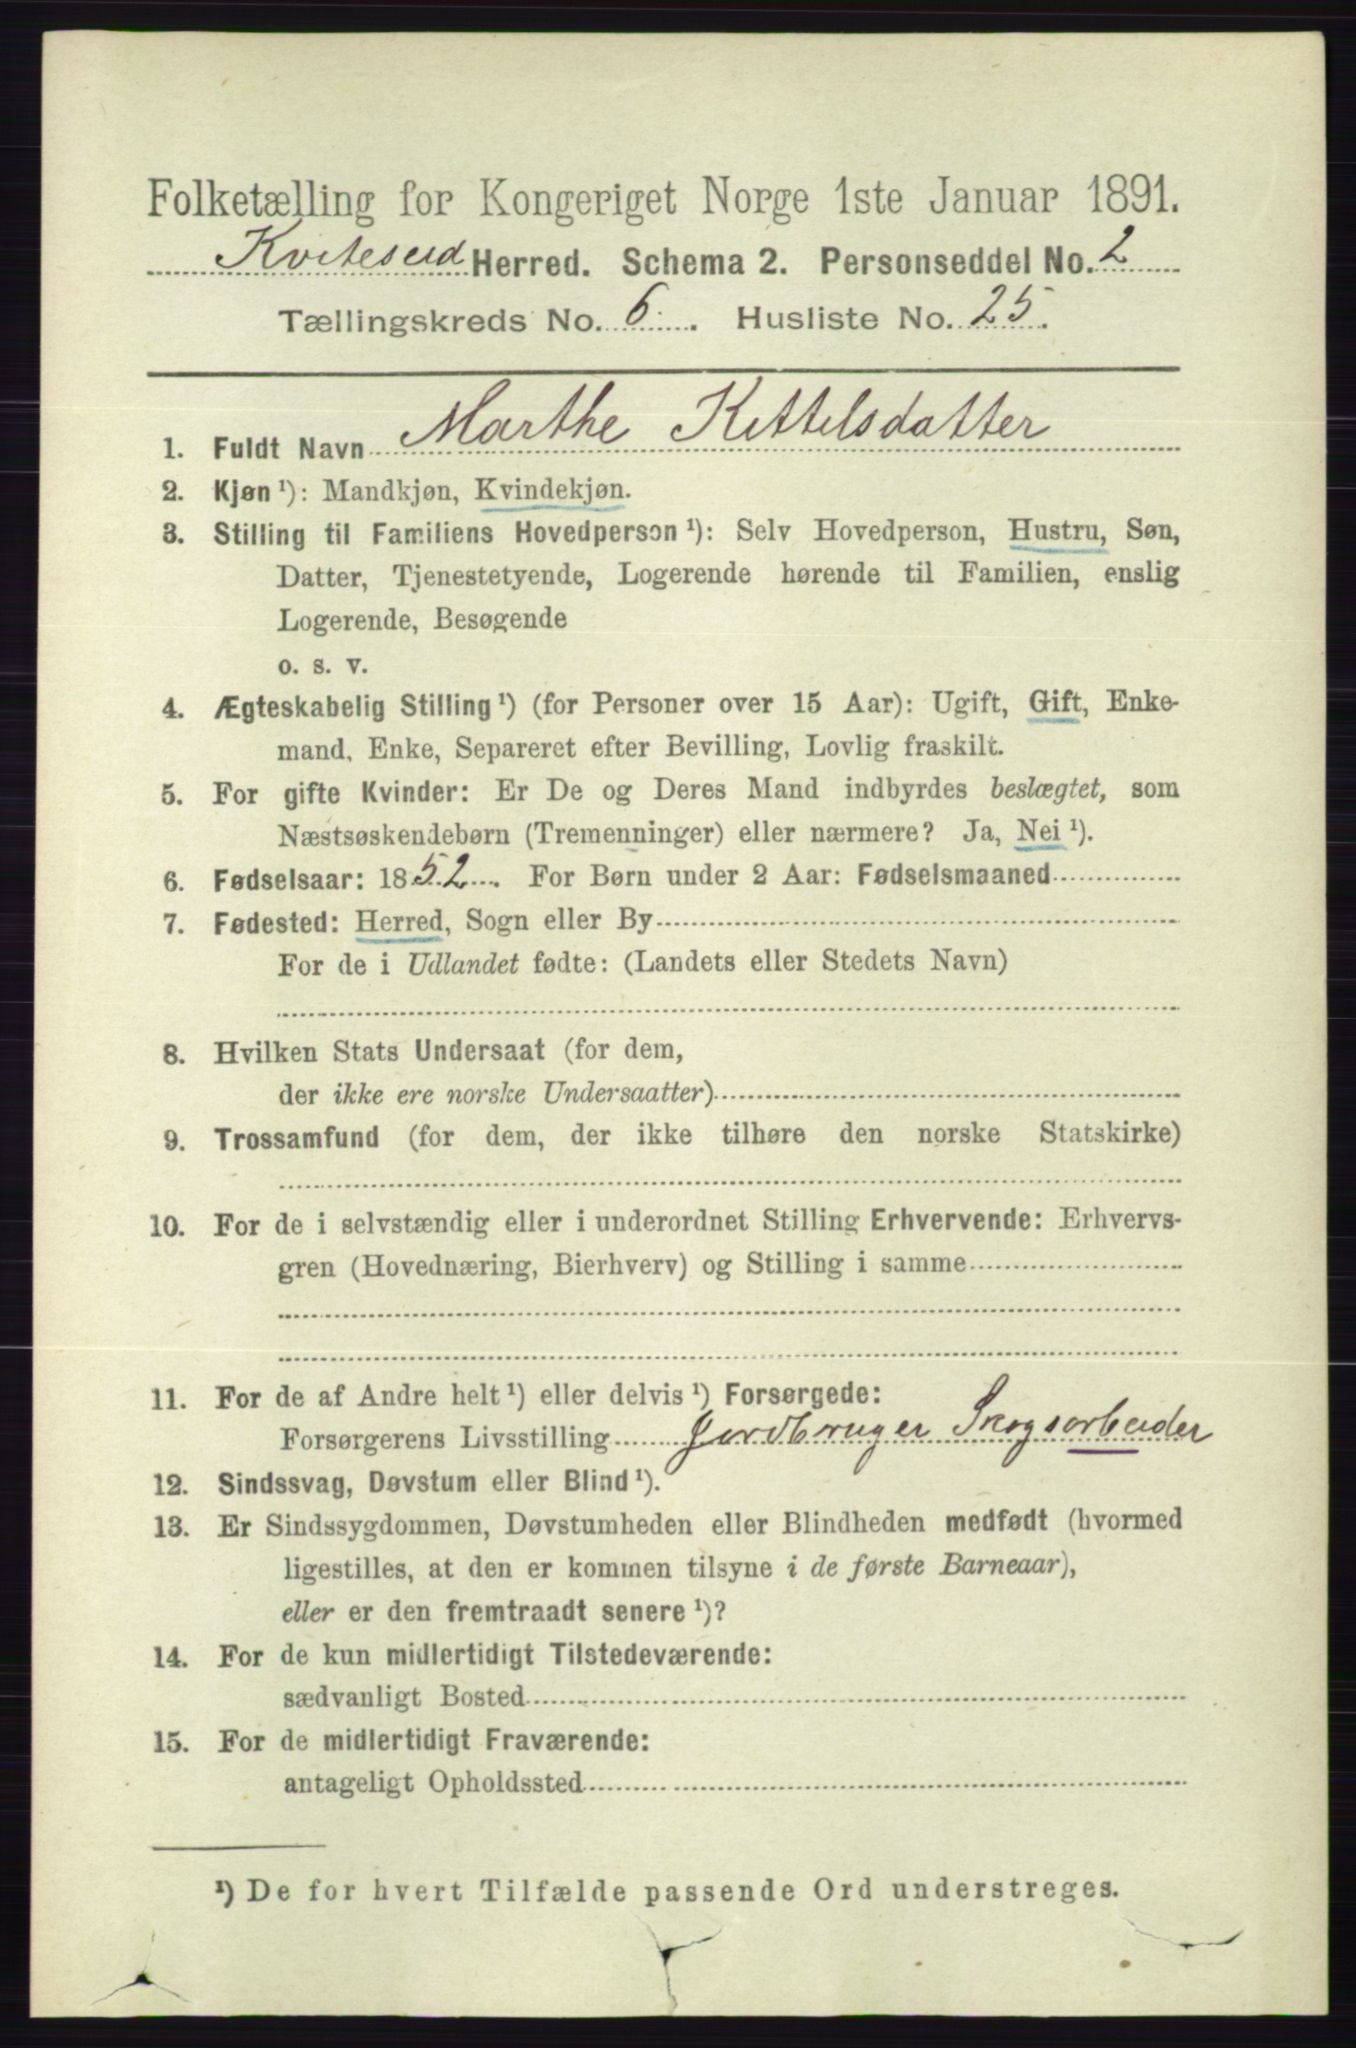 Folketælling for Kongeriget Norge 1ste Januar 1891.
Kviteseid Herred. Schema 2. Personseddel No. 2
Tællingskreds No. 6. Husliste No. 25.
1. Fuldt Navn Marthe Kittelsdatter
2. Kjøn ¹): Mandkjøn, Kvindekjøn.
3. Stilling til Familiens Hovedperson ¹): Selv Hovedperson, Hustru, Søn,
Datter, Tjenestetyende, Logerende hørende til Familien, enslig
Logerende, Besøgende
o. s. v.
4. Ægteskabelig Stilling ¹) (for Personer over 15 Aar): Ugift, Gift, Enke-
mand, Enke, Separeret efter Bevilling, Lovlig fraskilt.
5. For gifte Kvinder: Er De og Deres Mand indbyrdes beslægtet, som
Næstsøskendebørn (Tremenninger) eller nærmere? Ja, Nei ¹).
6. Fødselsaar: 1852. For Børn under 2 Aar: Fødselsmaaned
7. Fødested: Herred, Sogn eller By
For de i Udlandet fødte: (Landets eller Stedets Navn)
8. Hvilken Stats Undersaat (for dem,
der ikke ere norske Undersaatter)
9. Trossamfund (for dem, der ikke tilhøre den norske Statskirke)
10. For de i selvstændig eller i underordnet Stilling Erhvervende: Erhvervs-
gren (Hovednæring, Bierhverv) og Stilling i samme
11. For de af Andre helt ¹) eller delvis ¹) Forsørgede:
Forsørgerens Livsstilling Jordbruger Skogsarbeider
12. Sindssvag, Døvstum eller Blind ¹).
13. Er Sindssygdommen, Døvstumheden eller Blindheden medfødt (hvormed
ligestilles, at den er kommen tilsyne i de første Barneaar),
eller er den fremtraadt senere ¹)?
14. For de kun midlertidigt Tilstedeværende:
sædvanligt Bosted
15. For de midlertidigt Fraværende:
antageligt Opholdssted
¹) De for hvert Tilfælde passende Ord understreges.